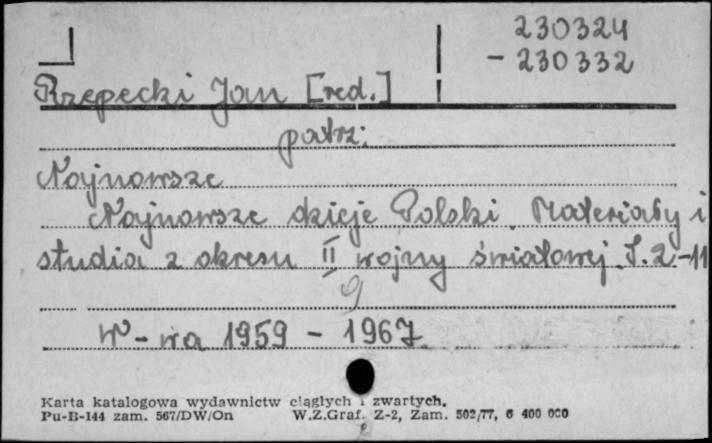 230324
- 230332
Rzepecki Jan [red.]
patrz:
Najnowsze
Najnowsze dzieje Polski. Materiały i
studia z okresu II wojny światowej. T. 2-11
9
W-wa 1959 - 1967
Karta katalogowa wydawnictw ciągłych i zwartych.
Pu-B-144 zam. 567/DW/On W.Z.Graf. Z-2, Zam. 502/77, 6 400 000